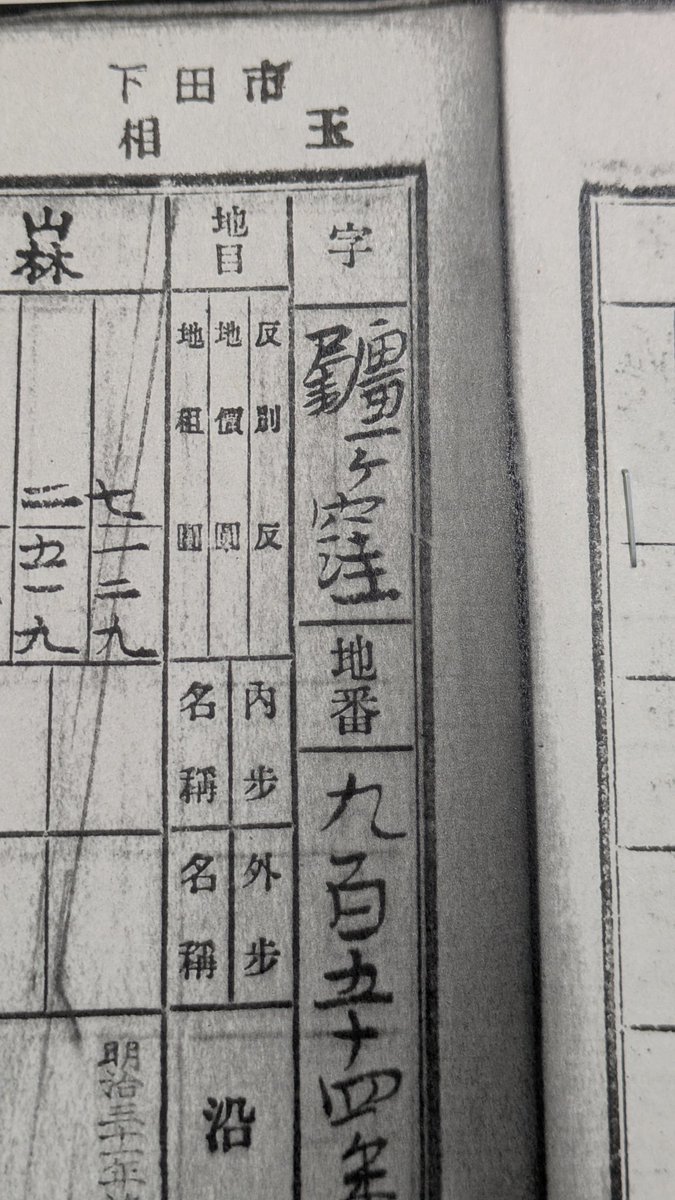 下田市
相玉
字
ヶ窪
地番
九百五十四
地目
反別 反
地價 圓
地租 圓
内歩
名稱
外歩
名稱
沿
山林
七一二九
五一九
明治三十一年